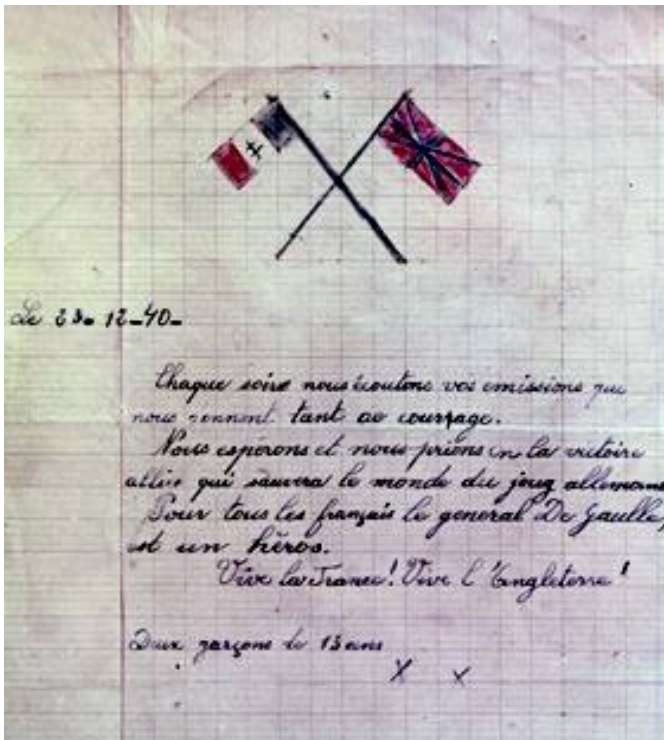 Le 23-12-40-
Chaque soir nous écoutons vos emissions qui
nous donnent tant de courage.
Nous espérons et nous prions en la victoire
alliée qui sauvera le monde du joug allemand
Pour tous les français le general De Gaulle,
est un héros.
Vive la France! Vive l'Angleterre!
Deux garçons de 13 ans
X X